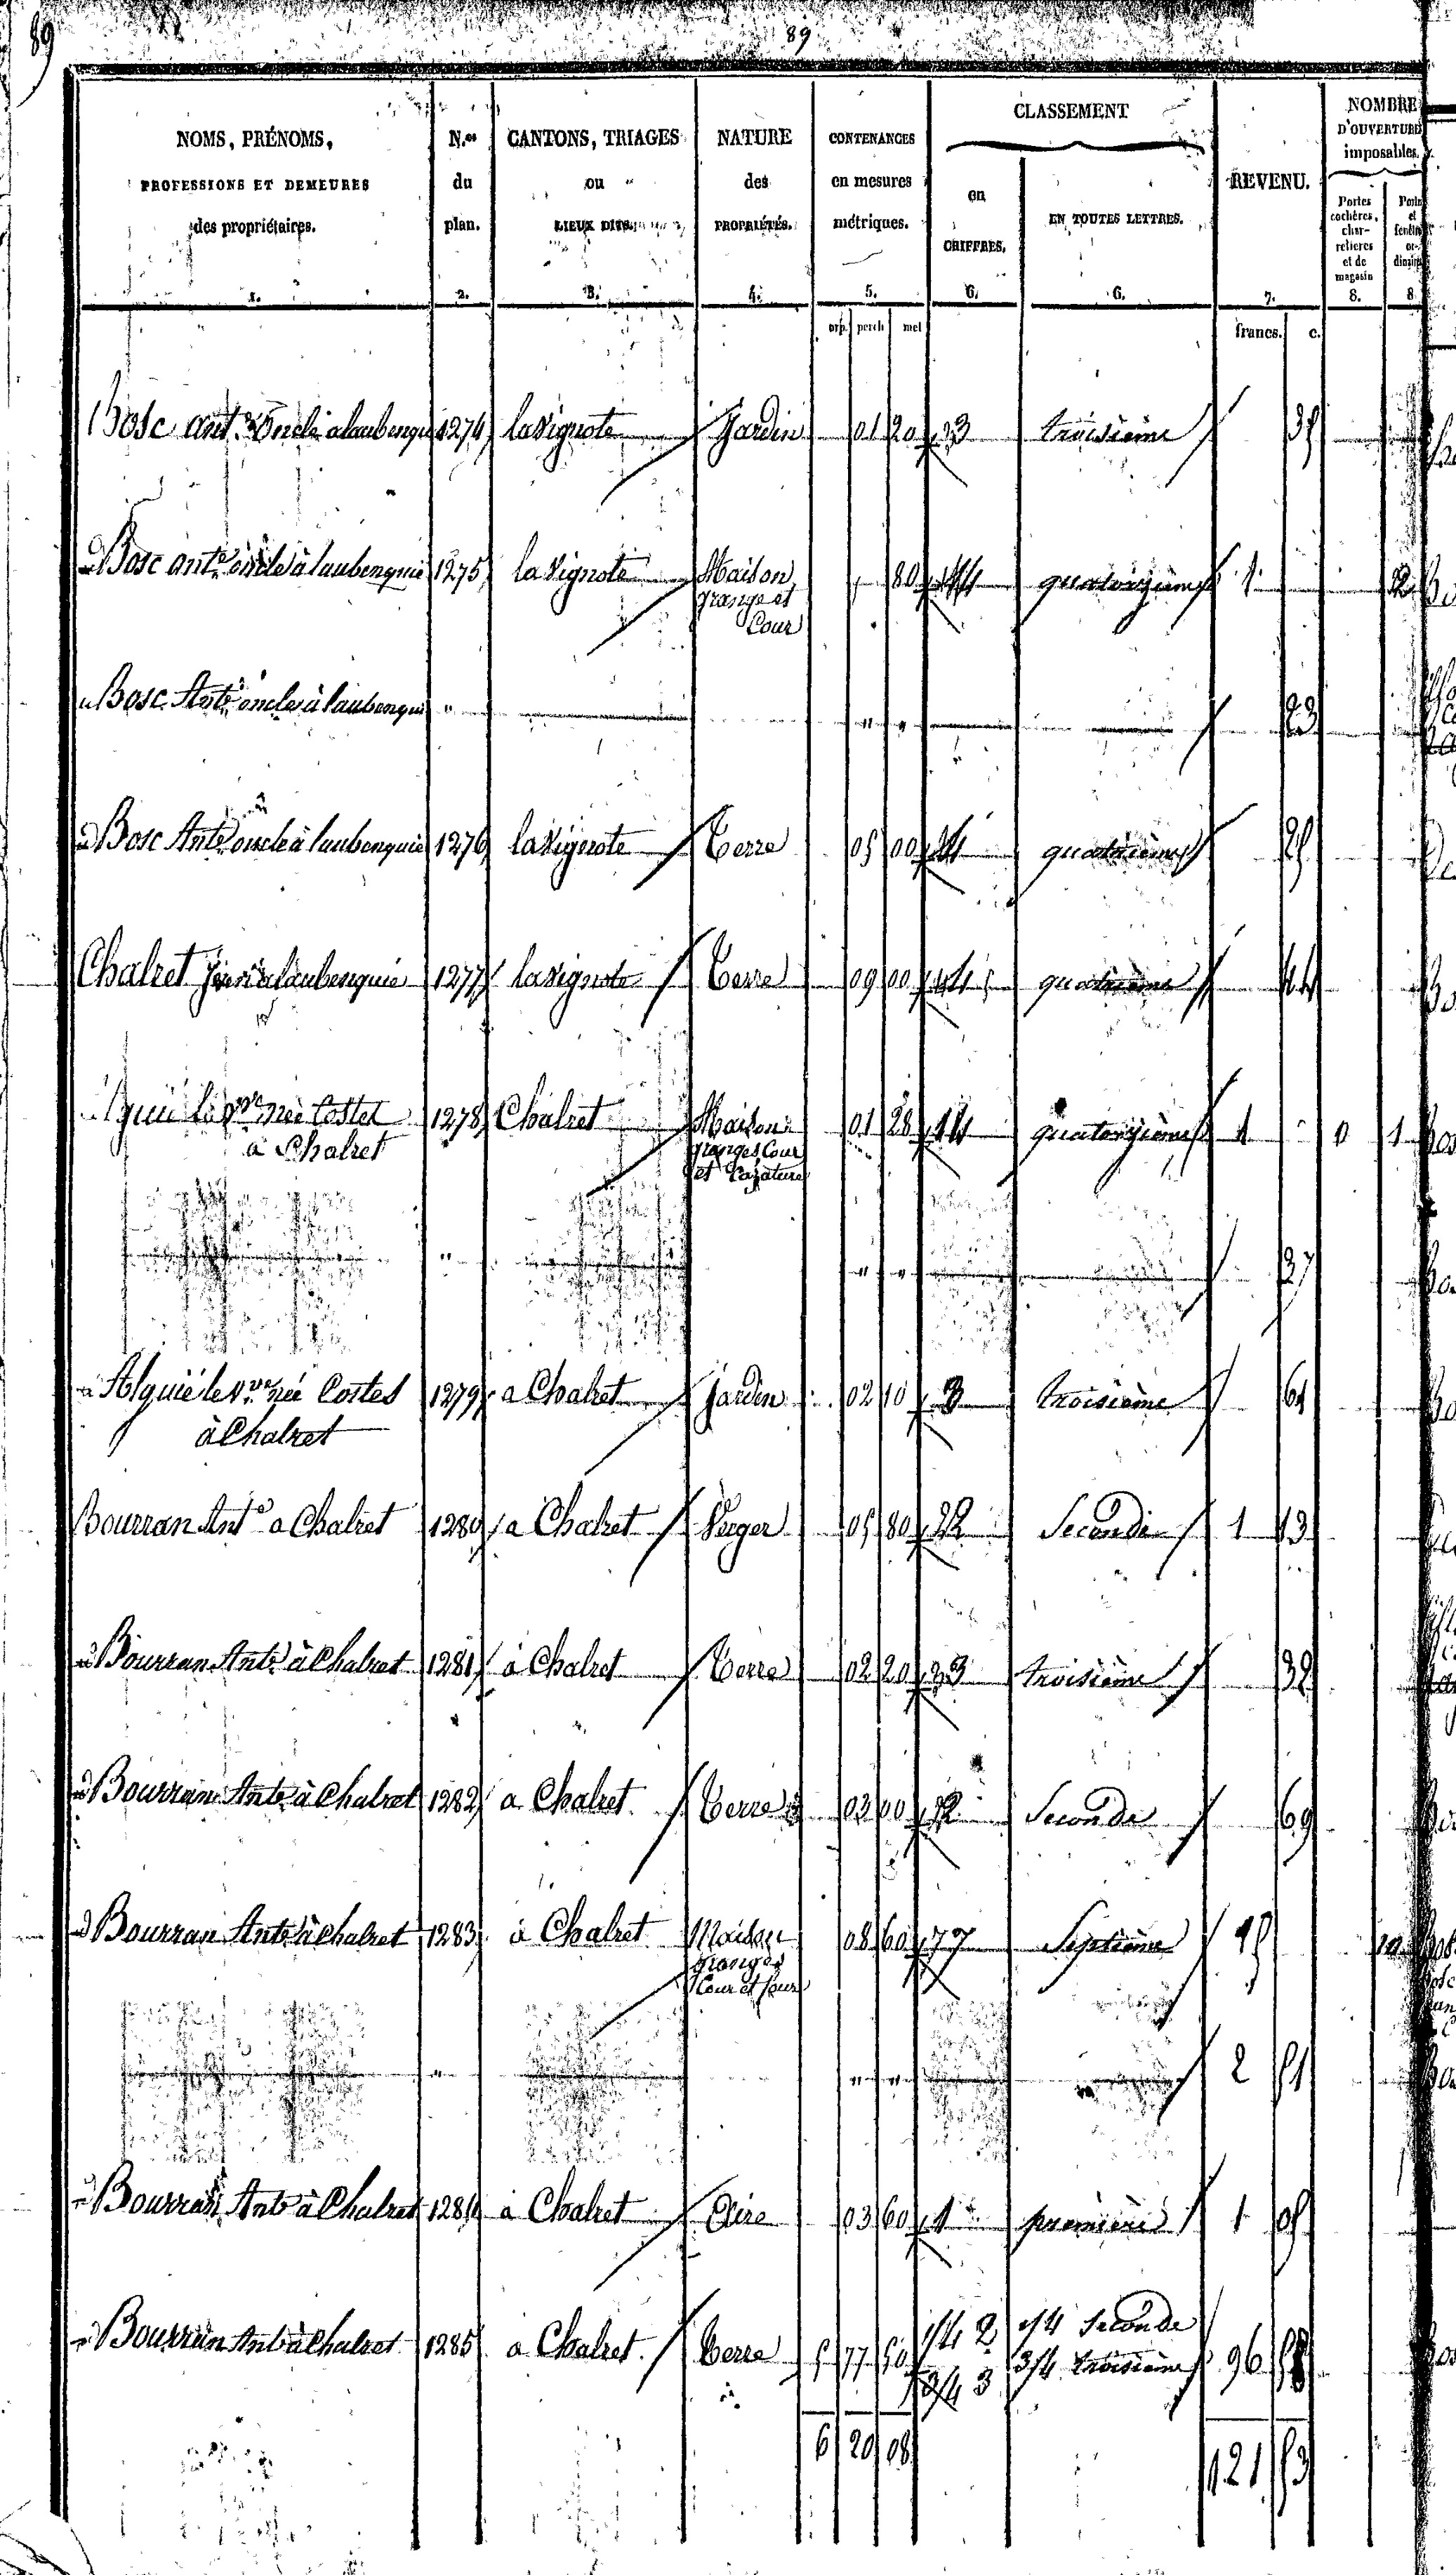 89
89
NOMS, PRÉNOMS, PROFESSIONS ET DEMEURES des propriétaires. 1.
N.os du plan. 2.
CANTONS, TRIAGES ou LIEUX DITS. 3.
NATURE des PROPRIÉTÉS. 4.
CONTENANCES en mesures métriques. 5.
CLASSEMENT
en CHIFFRES. 6.
EN TOUTES LETTRES. 6.
REVENU. 7.
NOMBRE D'OUVERTURE imposables.
Portes cochères, char- retieres et de magasin 8.
arp. perch met
francs. c.
Bosc ant.e Oncle a laubengu 1274 lavignote Jardin 01 20 3 troisième 35
Bosc ant.e oncle à laubenguie 1275 lavignote Maison 80 14 quatorzième 1 2
grange et
Cour
Bosc Ant.e oncle à laubengui " " " 23
Bosc Ant.e oncle à laubenguie 1276 lavignote Terre 05 00 4 quatrième 25
Chalret à laubenguie 1277 lavignote Terre 09 00 4 quatrième 44
la v.ve née Costes 1278 Chalret Maison 01 28 14 quatorzième 1 0 1
à Chalret granges, Cour
et
" " " 37
Alquié la v.ve née Costes 1279 a Chalret Jardin 02 10 3 troisième 61
à Chalret
Bourran Ant.e a Chalret 1280 a Chalret Verger 05 80 2 Seconde 1 13
Bourran Ant.e à Chalret 1281 à Chalret Terre 02 20 3 troisième 32
Bourran Ant.e à Chalret 1282 a Chalret Terre 03 00 2 Seconde 69
Bourran Ant.e à Chalret 1283 à Chalret Maison 08 60 7 Septième
granges
Cour et four
" " " 2 51
Bourran Ant.e à Chalret 1284 à Chalret Aire 03 60 1 première 1 05
Bourran Ant.e à Chalret 1285 a Chalret Terre 5 77 50 1/4 2 1/4 Seconde 96
3/4 3 3/4 troisième
6 20 08 121 53